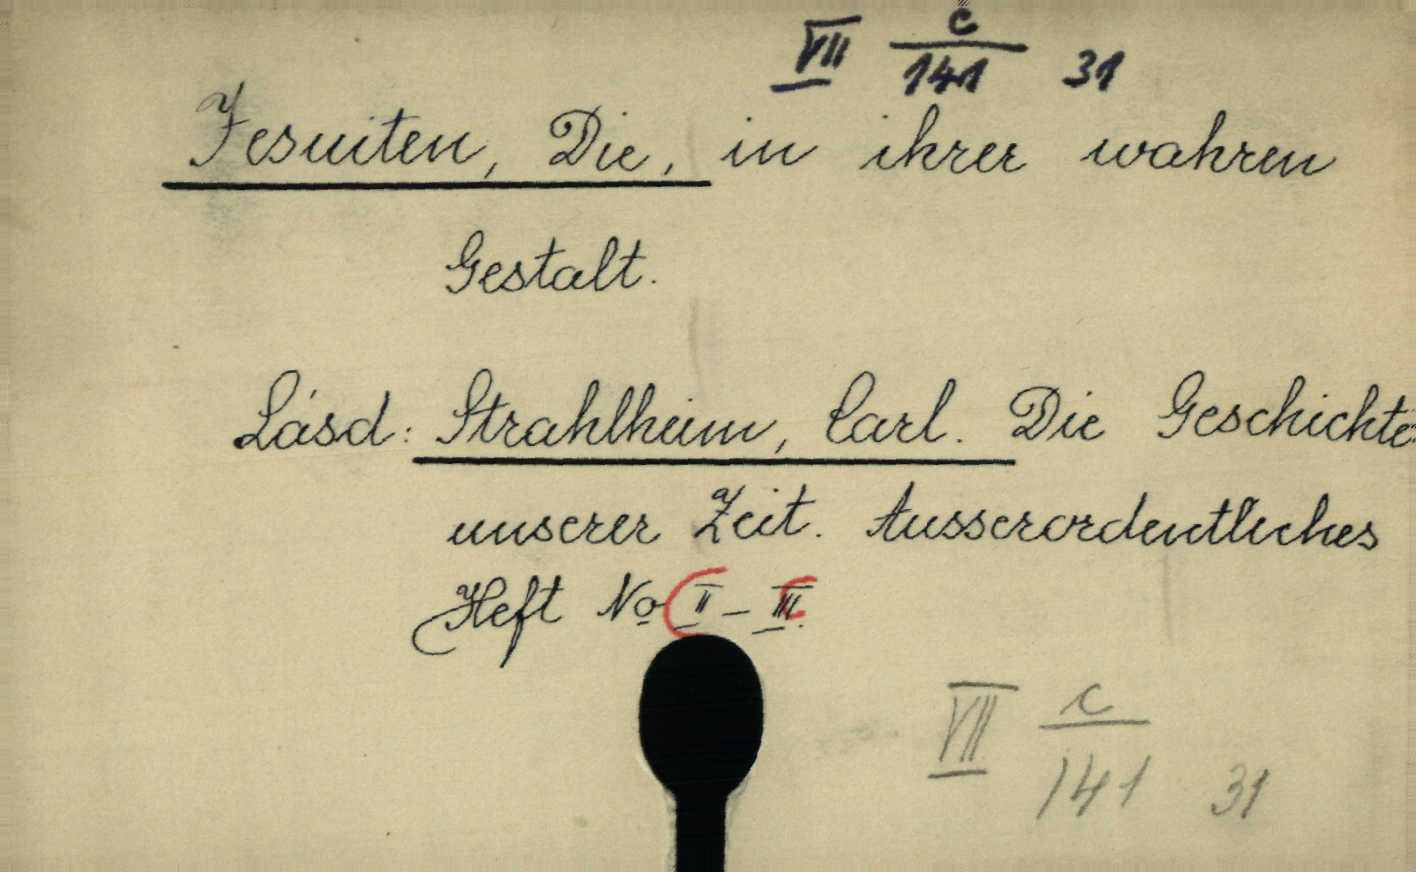 VII c/141 31
Jesuiten, Die, in ihrer wahren
Gestalt.
Lásd: Strahlheim, Carl. Die Geschichte
unserer Zeit. Ausserordentliches
Heft No II - III.
VII c/141 31